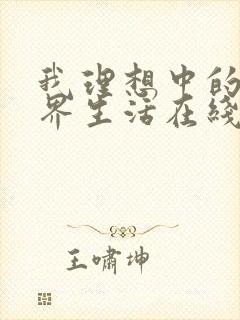 我理想中的
界生活在綫
王啸坤